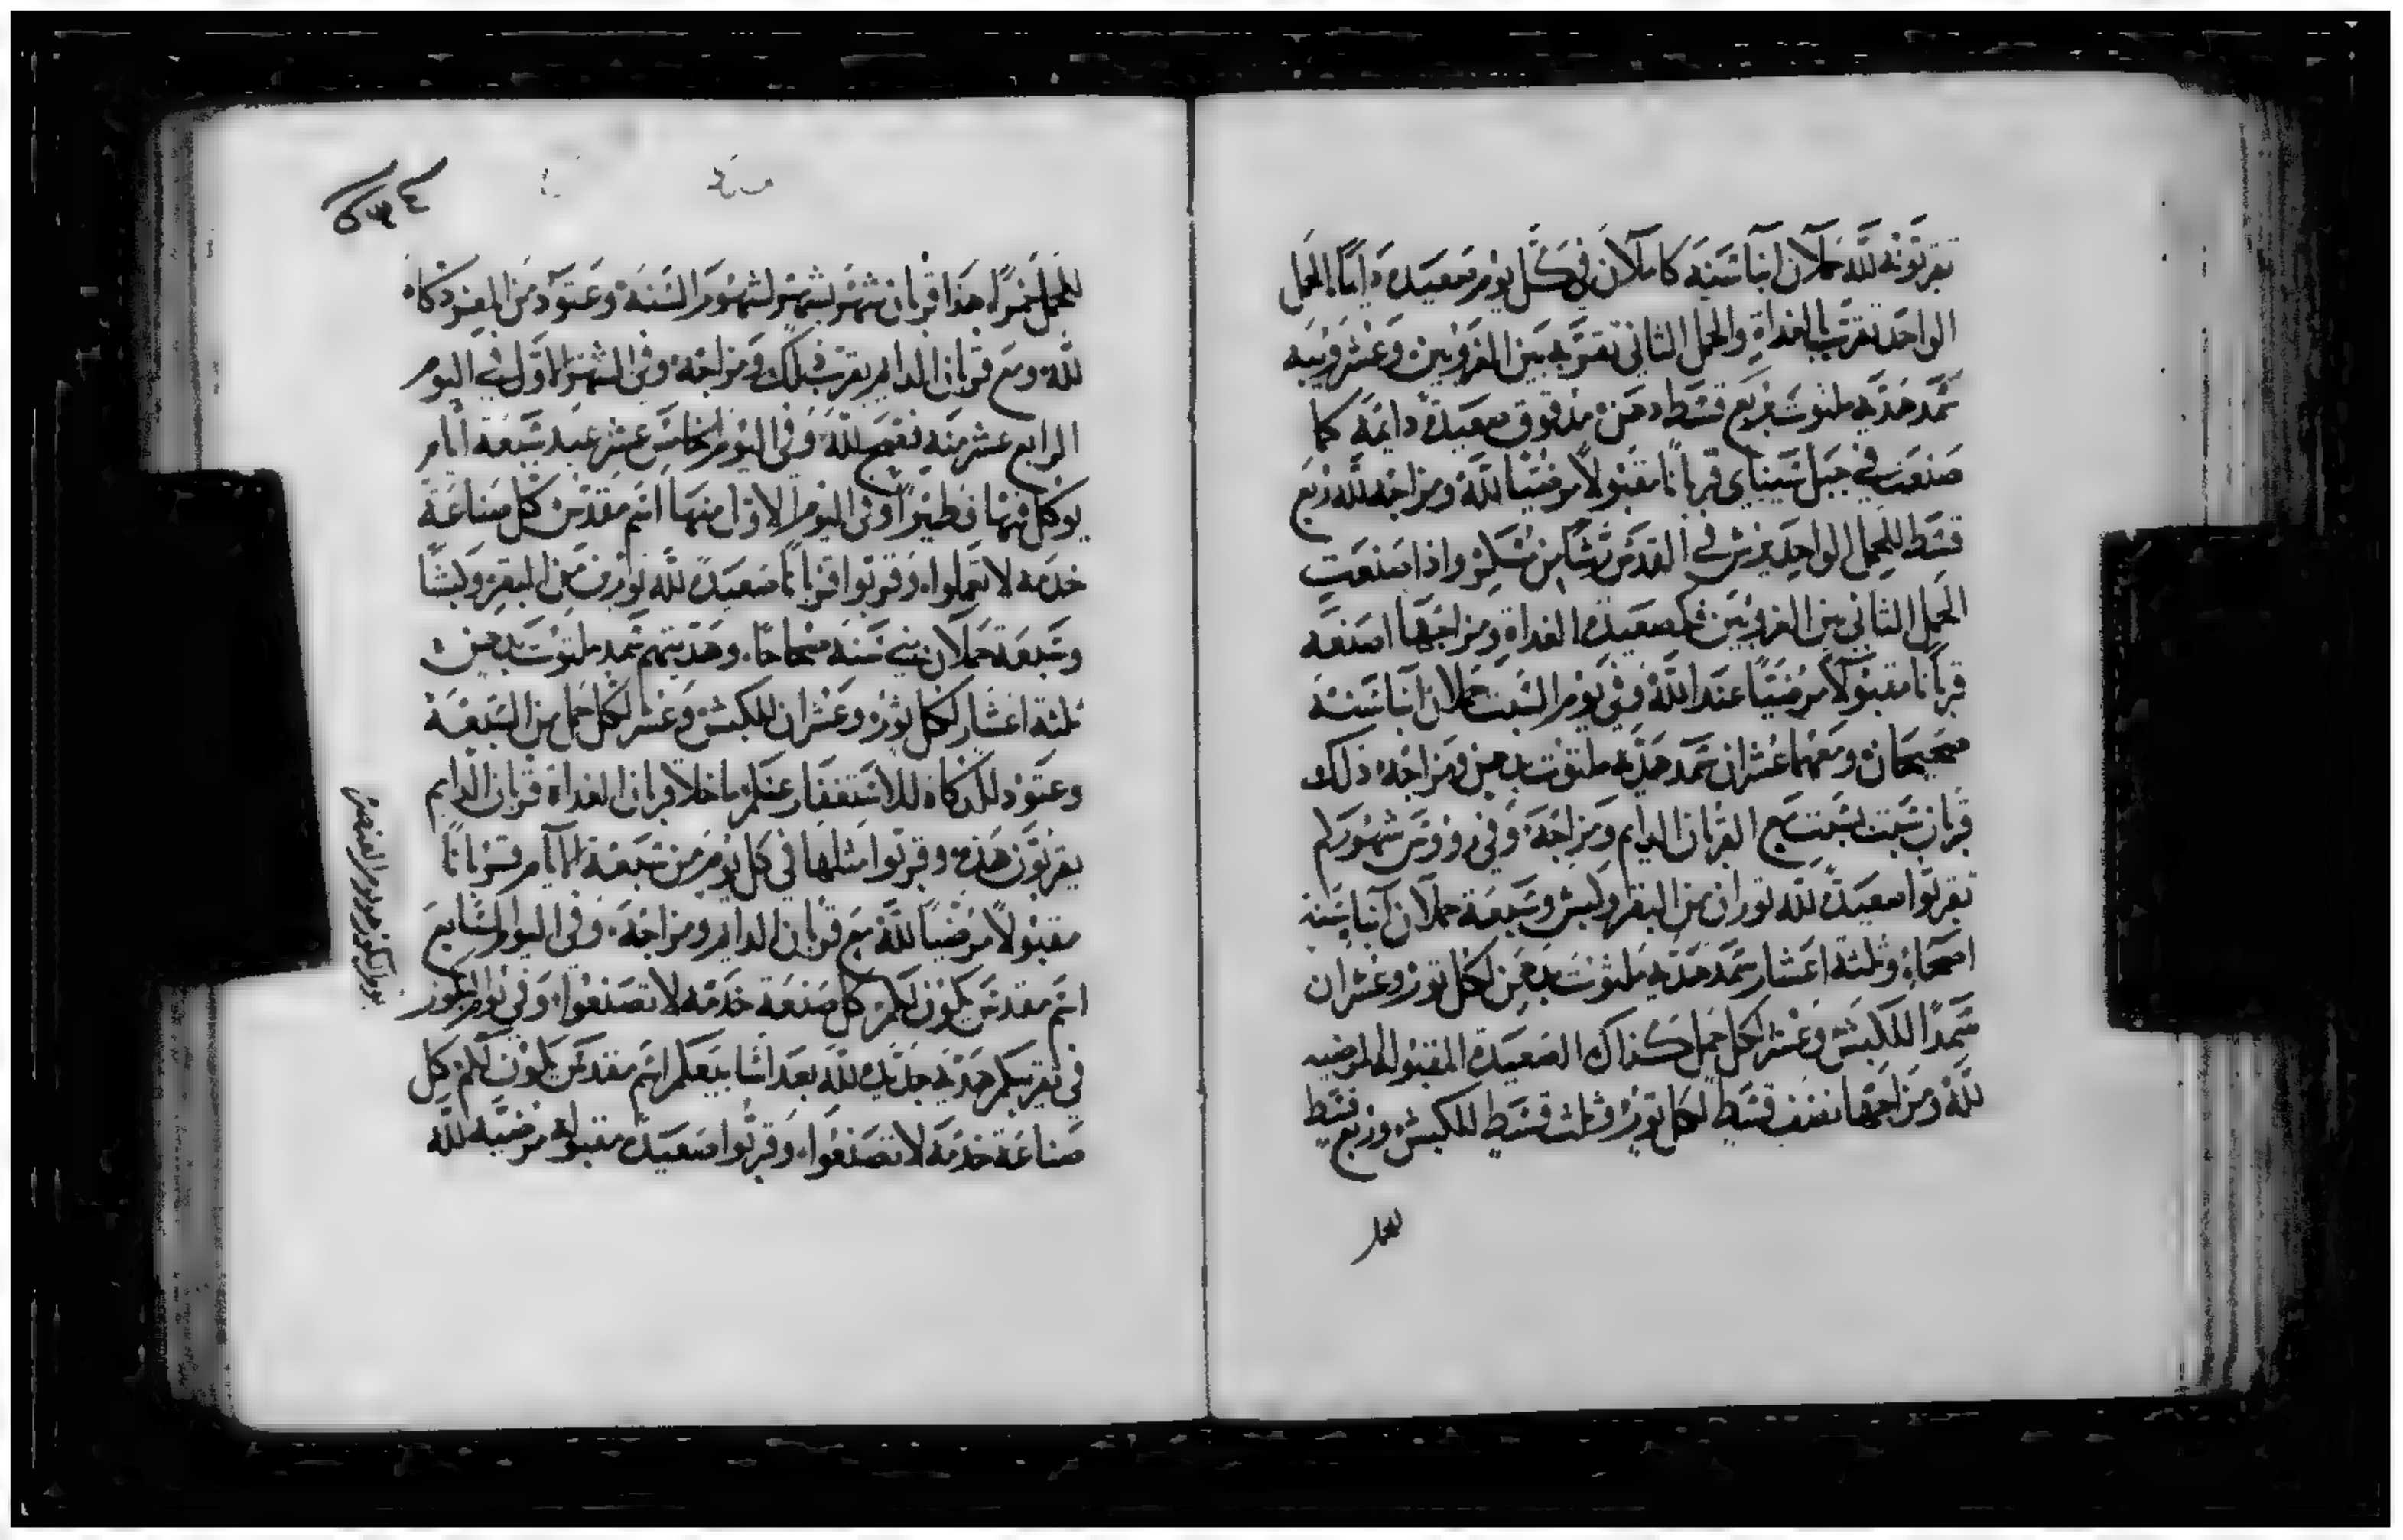 تقربونه لله حملان ابنا سنه كاملان في كل يوم صعيده دايما الحمل
الواحد تقرب بالغداة والحمل الثاني تقربه بين الغروبين وعشر ويبه
سمد هديه ملتوت بربع قسط دهن مدقوق صعيدة دايمة كما
صنعت في جبل سيناي قربانا مقبولا مرضيا لله ومزاجه لله ربع
قسط للحمل الواحد يرش في القدس شاكن مسكر واذا صنعت
الحمل الثاني بين الغروبين كصعيدة الغداة ومزاجها اصنعه
قربانا مقبولا مرضيا عند الله وفي يوم السبت حملان ابنا سنه
صحيحان ومعهما عشران سمد هديه ملتوت بدهن ومزاجه ذلك
قربان سبت بسبت مع القربان الدايم ومزاجه وفي رووس شهوركم
تقربوا صعيدة لله ثوران من البقر وكبش وسبعة حملان ابنا سنه
اصحاء وثلثه اعشار سمد هديه ملتوت بدهن لكل ثور وعشران
سمدا للكبش وعشر لكل حمل كذاك الصعيدة المقبوله المرضيه
لله ومزاجها نصف قسط لكل ثور وثلث قسط للكبش وربع قسط
للحمل
٥٣٤
للحمل خمرا هذا قربان شهر بشهر لشهور السنة وعتود من المعز دكاه
لله ومع قربان الدايم يقرب ذلك ومزاجه وفي الشهر الاول في اليوم
الرابع عشر منه فصح لله وفي اليوم الخامس عشر عيد سبعة ايام
يوكل فيها فطيرا وفي اليوم الاول منها اسم مقدس كل صناعة
خدمه لا تعملوا وقربوا قربانا صعيدة لله ثورين من البقر وكبشا
وسبعة حملان بني سنه صحاحا وهديتهم سمد ملتوت بدهن
ثلثه اعشار لكل ثور وعشران للكبش وعشر لكل حمل من السبعة
وعتود للدكاه للاستغفار عنكم ما خلا قربان الغداة قربان الدايم
يقربون هذه وقربوا مثلها في كل يوم من سبعة الايام قربانا
مقبولا مرضيا لله مع قربان الدايم ومزاجه وفي اليوم السابع
اسم مقدس يكون لكم كل صنعة خدمه لا تصنعوا وفي يوم البكور
في تقريبكم هديه جديده لله بعد اسابيعكم اسم مقدس يكون لكم كل
صناعة خدمه لا تصنعوا وقربوا صعيدة مقبوله مرضيه لله